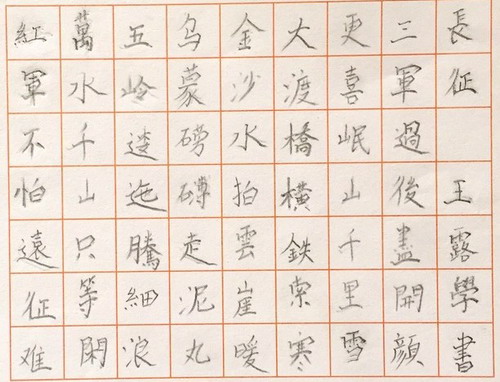 紅軍不怕遠征难
萬水千山只等閑
五岭逶迤騰細浪
乌蒙磅礴走泥丸
金沙水拍雲崖暖
大渡橋橫鉄索寒
更喜岷山千里雪
三軍過後盡開顔
長征 王露學書